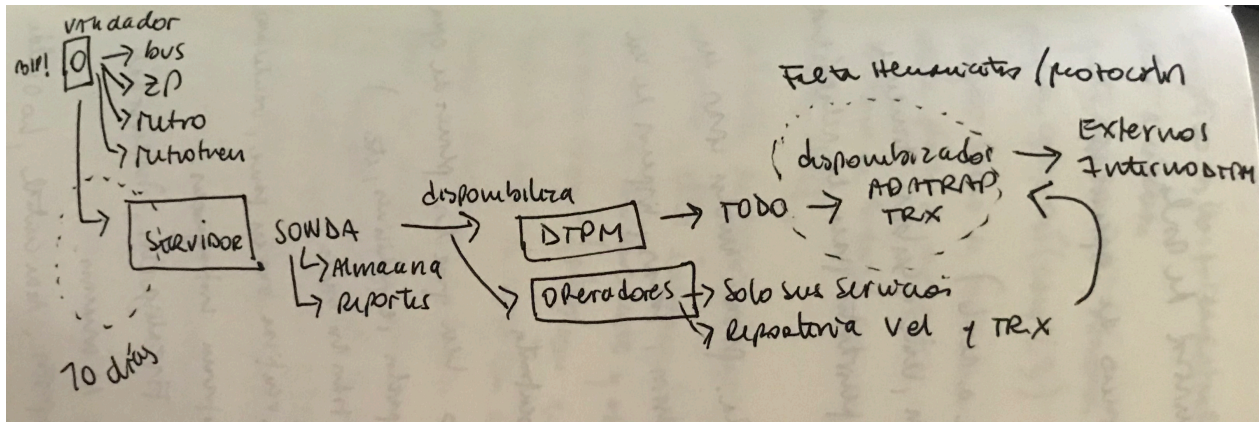 validador
BIP!
bus
ZP
metro
metrotren
SERVIDOR
10 días
SONDA
Almacena
Reportes
disponibiliza
DTPM
TODO
Operadores
Solo sus servicios
Reportería Vel y TRX
Falta Herramientas / protocolos
disponibilizador
ADATRAP
TRX
Externos
Internos DTPM